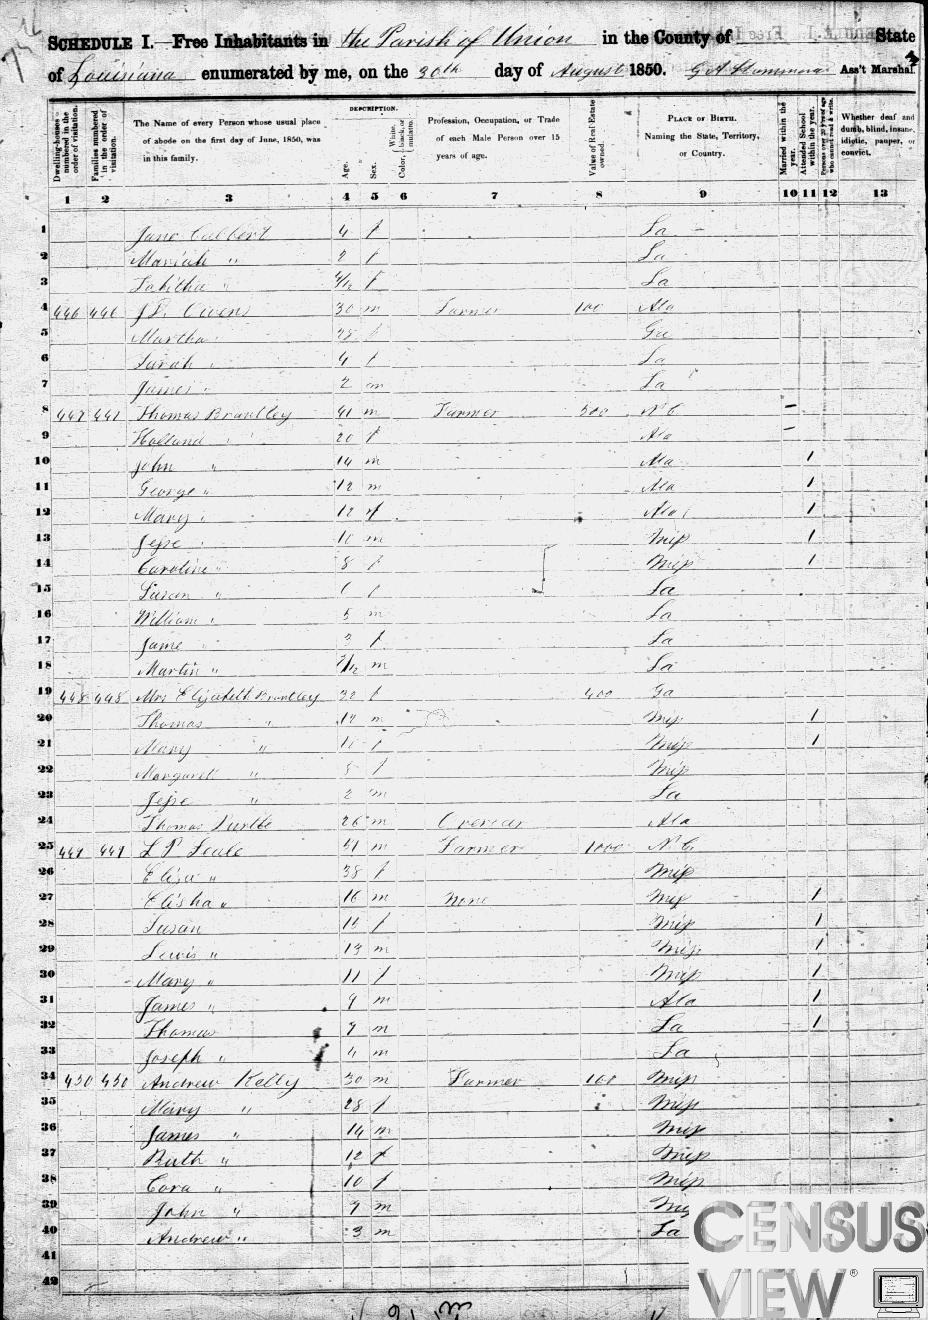 SCHEDULE I. Free Inhabitants in the Parish of Union in the County of State
of Louisiana enumerated by me, on the 30th day of August 1850. Ass't Marshal.
Dwelling-houses numbered in the order of visitation.
Families numbered in the order of visitation.
The Name of every Person whose usual place of abode on the first day of June, 1850, was in this family.
DESCRIPTION.
Age.
Sex.
Color, White, black, or mulatto.
Profession, Occupation, or Trade of each Male Person over 15 years of age.
Value of Real Estate owned.
PLACE OF BIRTH.
Naming the State, Territory, or Country.
Married within the year.
Attended School within the year.
Persons over 20 y'rs of age who cannot read & write.
Whether deaf and dumb, blind, insane, idiotic, pauper, or convict.
1 2 3 4 5 6 7 8 9 10 11 12 13
1 Jane Culbert 4 f La
2 Mariah " 2 f La
3 Tabitha " /12 f La
4 446 446 Owens 30 m Farmer 100 Ala
5 Martha " 28 f Ga
6 Sarah " 4 f La
7 James " 2 m La
8 447 447 Thomas Brantley 41 m Farmer 500 N C
9 Holland " 20 f Ala
10 John " 14 m Ala 1
11 George " 12 m Ala 1
12 Mary " 12 f Ala 1
13 Jesse " 10 m Miss 1
14 Caroline " 8 f Miss 1
15 Susan " f La
16 William " 5 m La
17 Jane " 3 f La
18 Martin " /12 m La
19 448 448 Mrs Elizabeth Brantley 32 f 400 Ga
20 Thomas " m Miss 1
21 Mary " 10 f Miss 1
22 Margaret " 5 f Miss
23 Jesse " 2 m La
24 Thomas 26 m Overseer Ala
25 449 449 L P 51 m Farmer 1000 N C
26 Eliza " 38 f Miss
27 Elisha " 16 m None Miss 1
28 Susan 15 f Miss 1
29 Lewis " 13 m Miss 1
30 Mary " 11 f Miss 1
31 James " 9 m Ala 1
32 Thomas 7 m La 1
33 Joseph " 4 m La
34 450 450 Andrew Kelly 30 m Farmer 100 Miss
35 Mary " 28 f Miss
36 James " 14 m Miss
37 Ruth " 12 f Miss
38 Cora " 10 f Miss
39 John " 9 m
40 Andrew " 3 m La
41
42
CENSUS
VIEW®